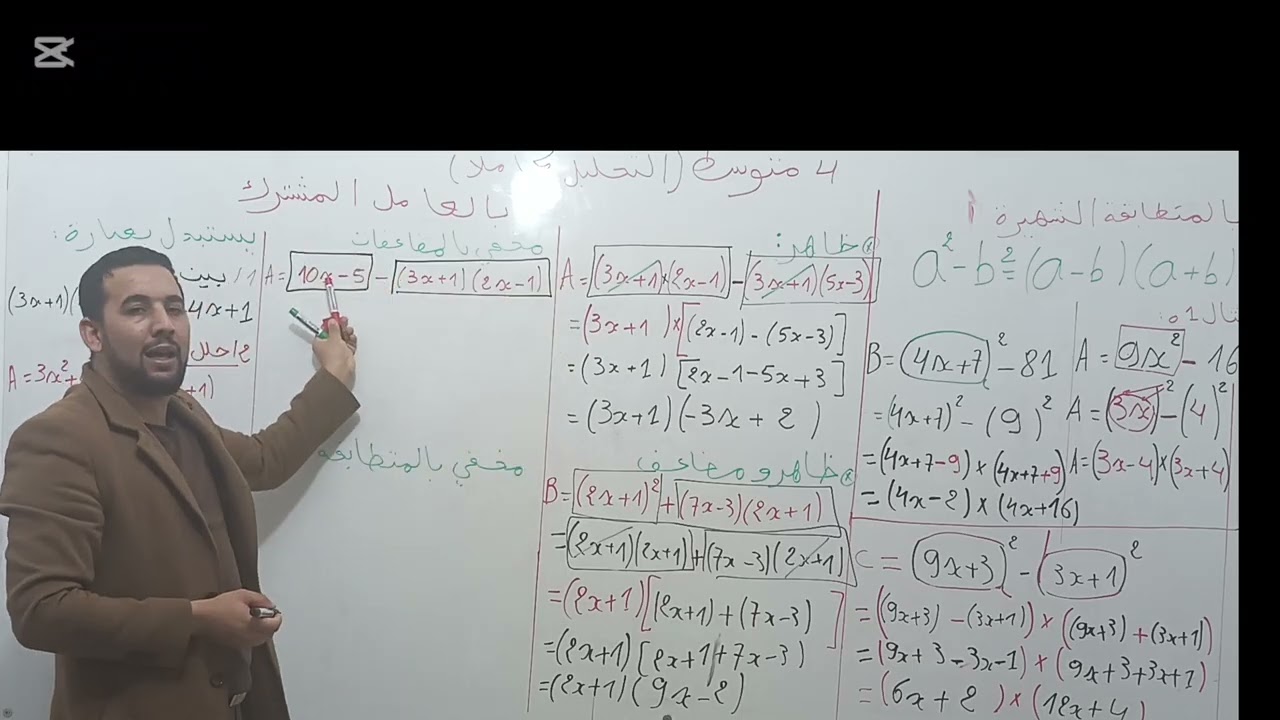 4 متوسط (التحليل كاملا)
بالمتطابقة الشهيرة
a²-b²=(a-b)(a+b)
B=(4x+7)²-81
=(4x+7)²-(9)²
=(4x+7-9)×(4x+7+9)
=(4x-2)×(4x+16)
A=9x²-16
A=(3x)²-(4)²
A=(3x-4)×(3x+4)
C=(9x+3)²-(3x+1)²
=((9x+3)-(3x+1))×((9x+3)+(3x+1))
=(9x+3-3x-1)×(9x+3+3x+1)
=(6x+2)×(12x+4)
بالعامل المشترك
ظاهر:
A=(3x+1)×(2x-1)-(3x+1)(5x-3)
=(3x+1)×[(2x-1)-(5x-3)]
=(3x+1)[2x-1-5x+3]
=(3x+1)(-3x+2)
ظاهر ومضاعف
B=(2x+1)²+(7x-3)(2x+1)
=(2x+1)(2x+1)+(7x-3)(2x+1)
=(2x+1)[(2x+1)+(7x-3)]
=(2x+1)[2x+1+7x-3)
=(2x+1)(9x-2)
مخفي بالمضاعفات
A=10x-5-(3x+1)(2x-1)
مخفي بالمتطابقة
يستبدل بعبارة:
1/ بين
(3x+1)( 4x+1
حلل
A=3x²+ +1)